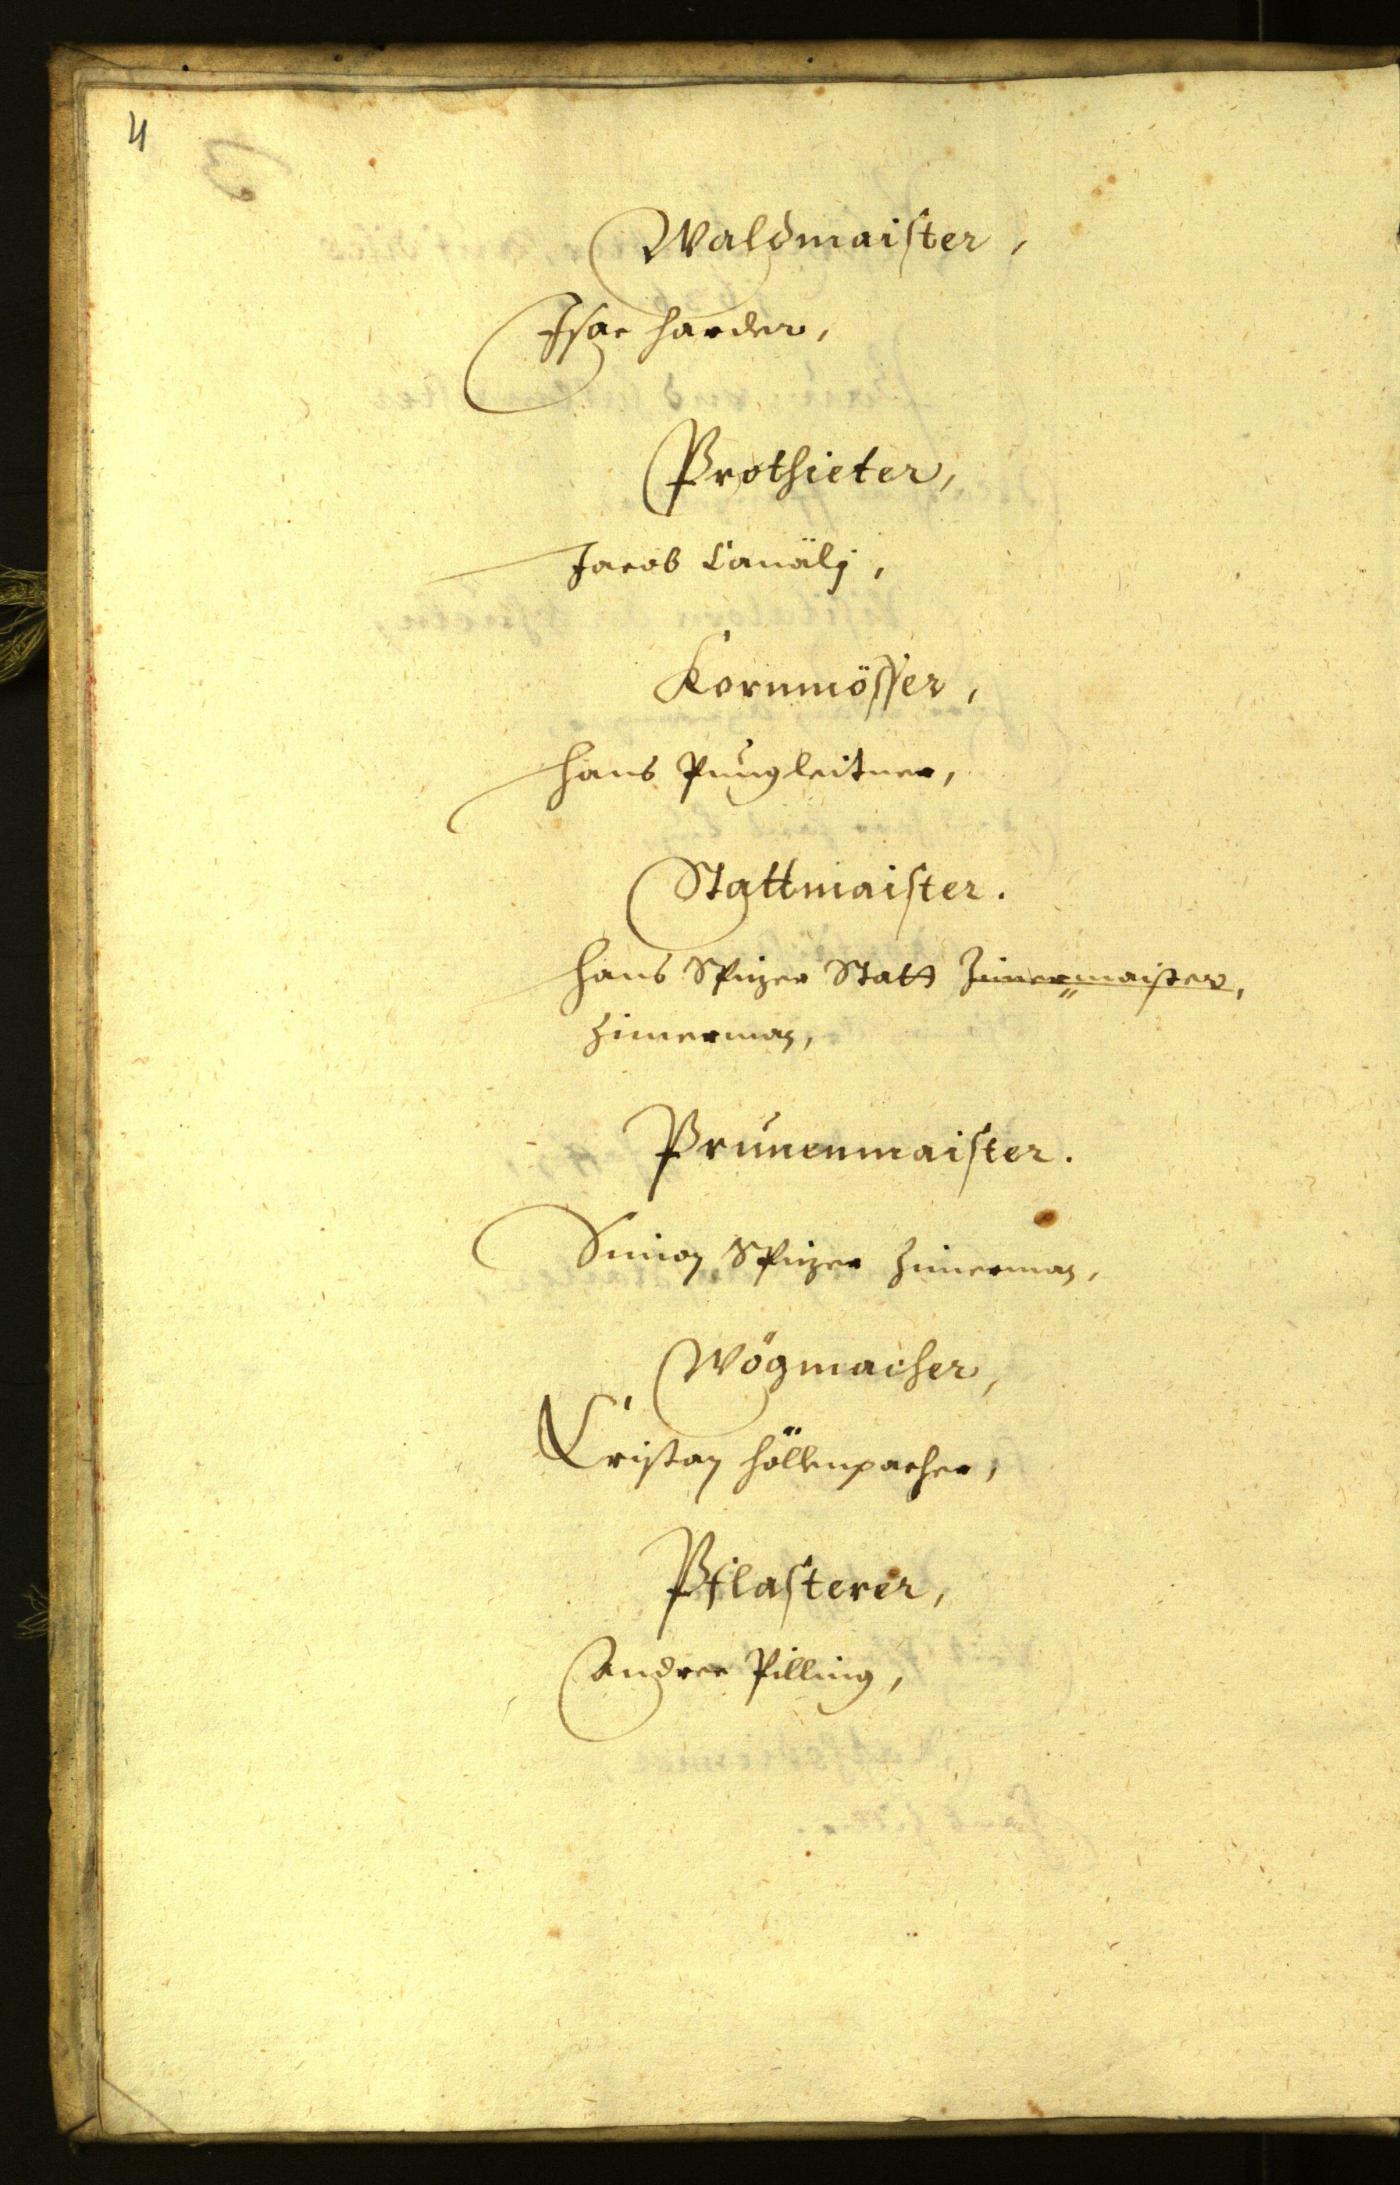 4
Waldmaister,
Isac Harder,
Prothieter,
Jacob Canälj,
Kornmösser,
Hans Pungleitner,
Stattmaister.
Hans Spizer Statt Zimermaister,
Zimerman,
Prunenmaister.
Simon Spizer Zimerman,
Wögmacher,
Cristan Höllenpacher,
Pflasterer,
Andree Pilling,